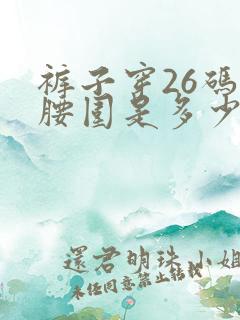 裤子穿26码
腰围是多少
還君明珠小姐
未经同意禁止转载